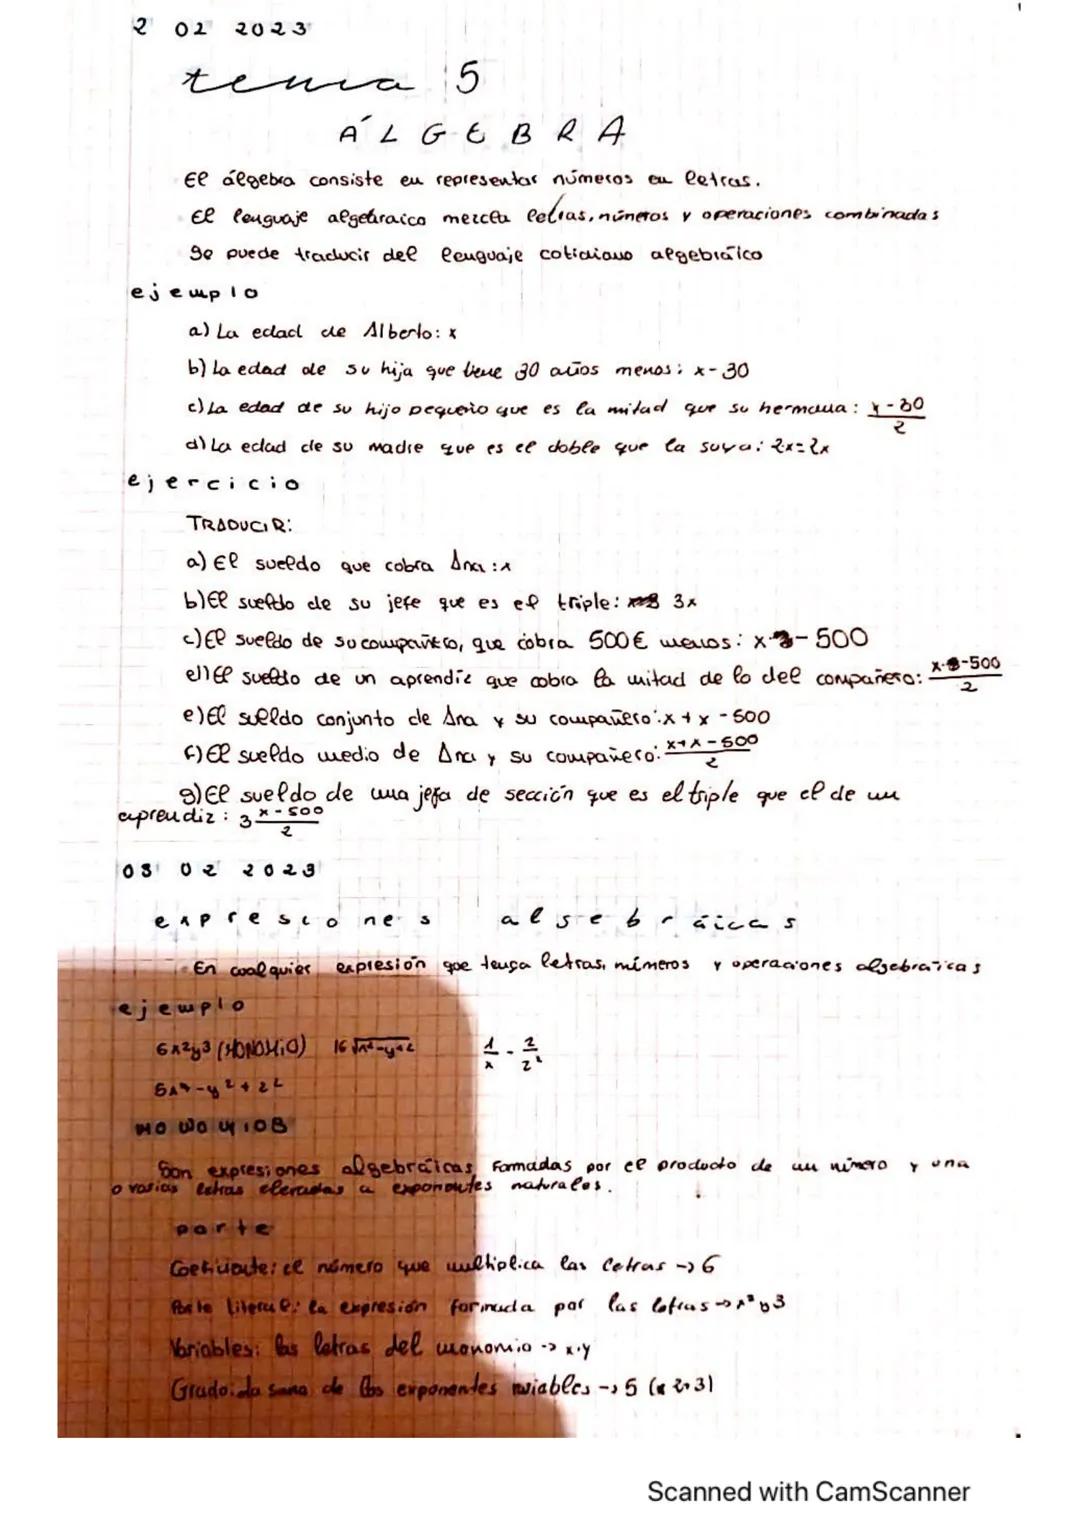 2 02 2023
tema 5
ÁLGEBRA
El álgebra consiste en representar números en letras.
El lenguaje algebraico mezcla letras, números y operaciones combinadas
Se puede traducir del lenguaje cotidiano algebráico
ejemplo
a) La edad de Alberto: x
b) La edad de su hija que tiene 30 años menos: x-30
c) La edad de su hijo pequeño que es la mitad que su hermana: x-30/2
d) La edad de su madre que es el doble que la suya: 2x=2x
ejercicio
TRADUCIR:
a) El sueldo que cobra Ana: x
b) El sueldo de su jefe que es el triple: 3x
c) El sueldo de su compañero, que cobra 500€ menos: x-500
d) El sueldo de un aprendiz que cobra la mitad de lo del compañero: x-500/2
e) El sueldo conjunto de Ana y su compañero: x+x-500
f) El sueldo medio de Ana y su compañero: x+x-500/2
g) El sueldo de una jefa de sección que es el triple que el de un
aprendiz: 3 x-500/2
03 02 2023
expresiones algebráicas
En cualquier expresión que tenga letras, números y operaciones algebraicas
ejemplo
6x2y3 (MONOMIO) 16 1/x - 2/2
MONOMIOS
Son expresiones algebráicas formadas por el producto de un número y una
o varias letras elevadas a exponentes naturales.
parte
Coeficiente: el número que multiplica las letras → 6
Parte literal: la expresión formada por las letras → x²y3
Variables: las letras del monomio → x·y
Grado: la suma de los exponentes variables → 5 (2+3)
Scanned with CamScanner